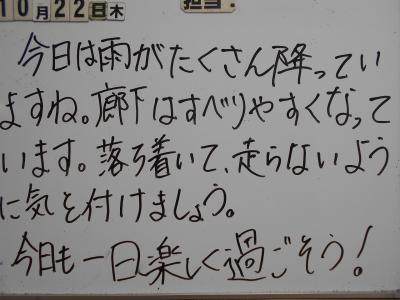 10月22日木 担当:
今日は雨がたくさん降ってい
ますね。廊下はすべりやすくなって
います。落ち着いて、走らないよう
に気を付けましょう。
今日も一日楽しく過ごそう!